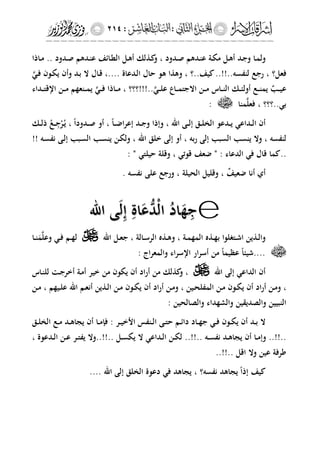 الجزء الثاني : الباب العاشر : ٢١٤
ولما وجد أهل مكة عندهم صدود ، وكذلك أهل الطائف عندهم صدود .. ماذا
فعل؟ ، رجع لنفسه..!!..كيف..؟ ، وهذا هو حال الدعاة .....، قال لا بد وأن يكون فيَّ
عيبٌ يمنع أولئك الناس من الاجتماع عليَّ..!!!؟؟؟ ، ماذا فيَّ يمنعهم من الإقتداء
بي..؟؟؟ ، فعلَّمنا :
أن الداعي يدعو الخلق إلى الله ، وإذا وجد إعراضاً ، أو صدوداً ، يُرْجِعُ ذلك
لنفسه ، ولا ينسب السبب إلى ربه ، أو إلى خلق الله ، ولكن ينسب السبب إلى نفسه !!
..كما قال في الدعاء : " ضعف قوتي ، وقلة حيلتي " :
أي أنا ضعيفٌ ، وقليل الحيلة ، ورجع على نفسه .
جِهَادُ الْدُّعَاةِ إِلَى الله
والذين اشتغلوا بهذه المهمة ، وهذه الرسالة ، جعل الله لهم في وعَلَّمَنا
....شيئاً عظيماً من أسرار الإسراء والمعراج :
أن الداعي إلى الله ، وكذلك من أراد أن يكون من خير أمة أخرجت للناس
، ومن أراد أن يكون من المفلحين ، ومن أراد أن يكون من الذين أنعم الله عليهم ، من
النبيين والصديقين والشهداء والصالحين :
لا بد أن يكون في جهاد دائم حتى النفس الأخير : فإما أن يجاهد مع الخلق
..!!.. وإما أن يجاهد نفسه ..!!.. لكن الداعي لا يكسل ..!!..ولا يفتر عن الدعوة ،
طرفة عين ولا اقل ..!!..
كيف إذاً يجاهد نفسه؟ ، يجاهد في دعوة الخلق إلى الله ....